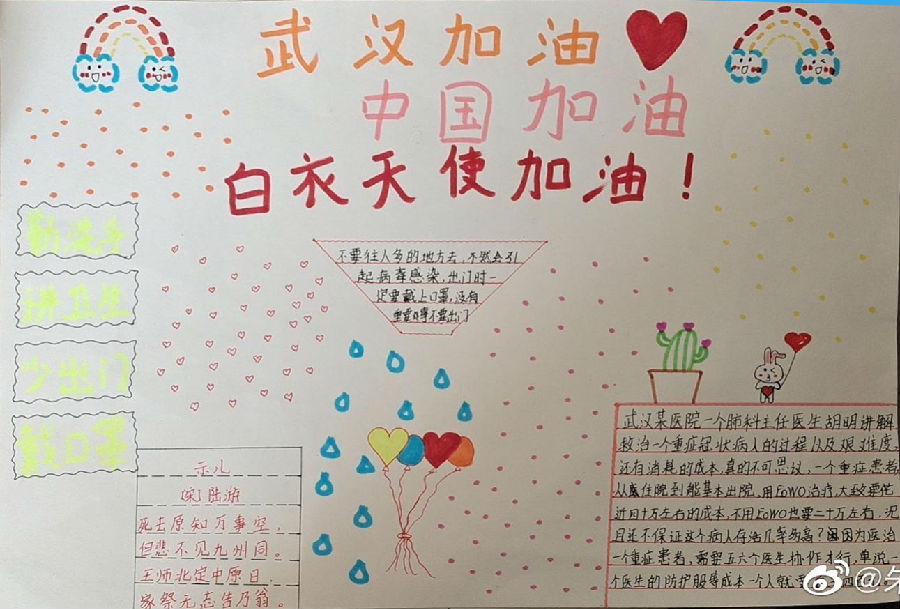 武汉加油
中国加油
白衣天使加油！
勤洗手
讲卫生
少出门
戴口罩
不要往人多的地方去，不然会引
起病毒感染，出门时一
定要戴上口罩，没有
重要的事不要出门
示儿
[宋]陆游
死去原知万事空，
但悲不见九州同。
王师北定中原日，
家祭无忘告乃翁。
武汉某医院一个肺科主任医生胡明讲解
救治一个重症冠状病人的过程以及艰难度，
还有消耗的成本，真的不可思议，一个重症患者，
从离住院到能基本出院，用ECWO治疗，大致要花
近四十万左右的成本，不用ECWO也要二十万左右，况
且还不保证这个病人存活几率多高？因因为医治
一个重症患者，需要五六个医生协作才行，单说一
个医生的防护服等成本一个人就
@朱